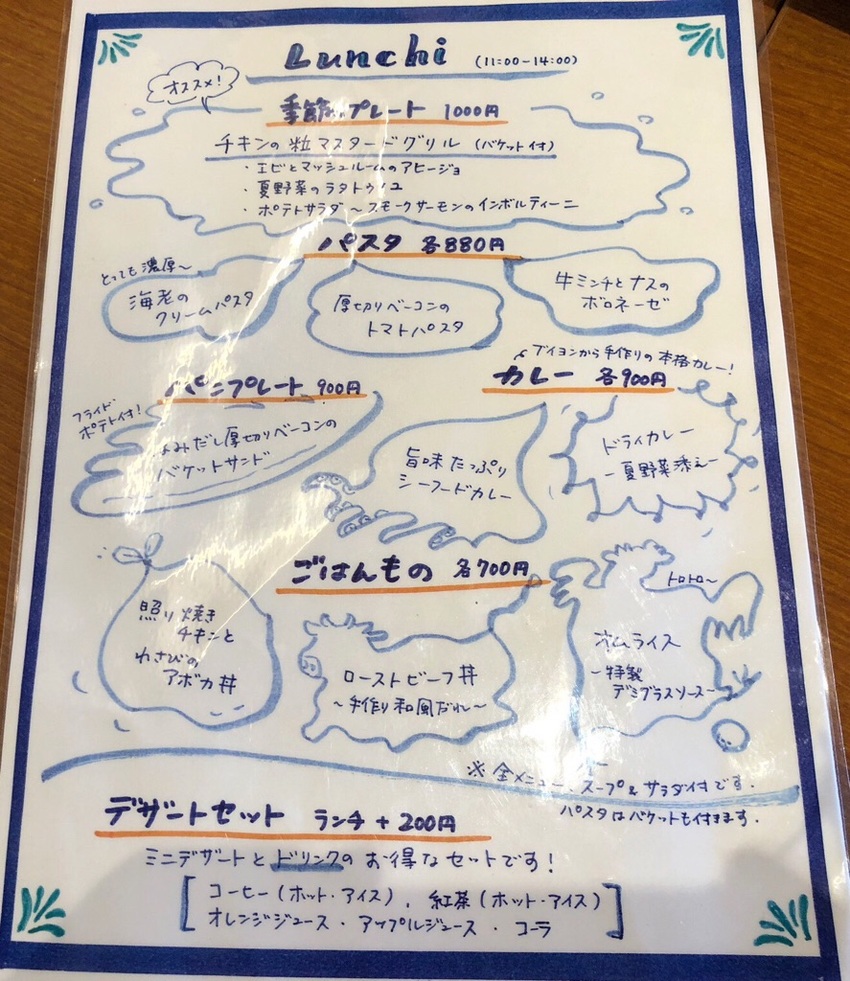 Lunchi (11:00-14:00)
オススメ!
季節のプレート 1000円
チキンの粒マスタードグリル (バケット付)
・エビとマッシュルームのアヒージョ
・夏野菜のラタトゥイユ
・ポテトサラダ〜スモークサーモンのインボルティーニ
パスタ 各880円
とっても濃厚〜
海老の
クリームパスタ
厚切りベーコンの
トマトパスタ
牛ミンチとナスの
ボロネーゼ
パニプレート 900円
フライド
ポテト付!
はみだし厚切りベーコンの
バケットサンド
ブイヨンから手作りの本格カレー!
カレー 各900円
旨味たっぷり
シーフードカレー
ドライカレー
ー夏野菜添えー
ごはんもの 各700円
照り焼き
チキンと
わさびの
アボカ丼
ローストビーフ丼
〜手作り和風だれ〜
トロトロ〜
オムライス
〜特製
デミグラスソース〜
※全メニュー、スープ&サラダ付です.
パスタはバケットも付きます.
デザートセット ランチ+200円
ミニデザートとドリンクのお得なセットです!
コーヒー(ホット・アイス), 紅茶(ホット・アイス)
オレンジジュース・アップルジュース・コーラ